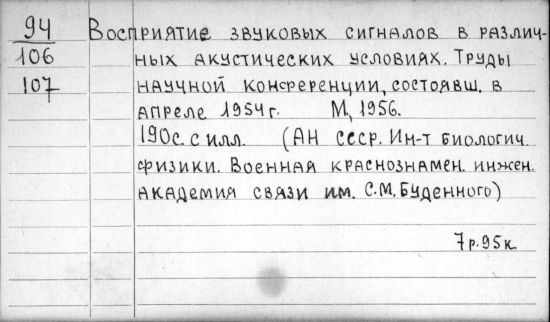 94 Восприятие звуковых сигналов в различ-
106 ных акустических условиях. Труды
107 научной конференции, состоявш. в
апреле 1954г. М, 1956.
190с. с илл. (АН СССР. Ин-т биологич.
физики. Военная краснознамен. инжен.
академия связи им. С.М. Буденного)
7р.95к.